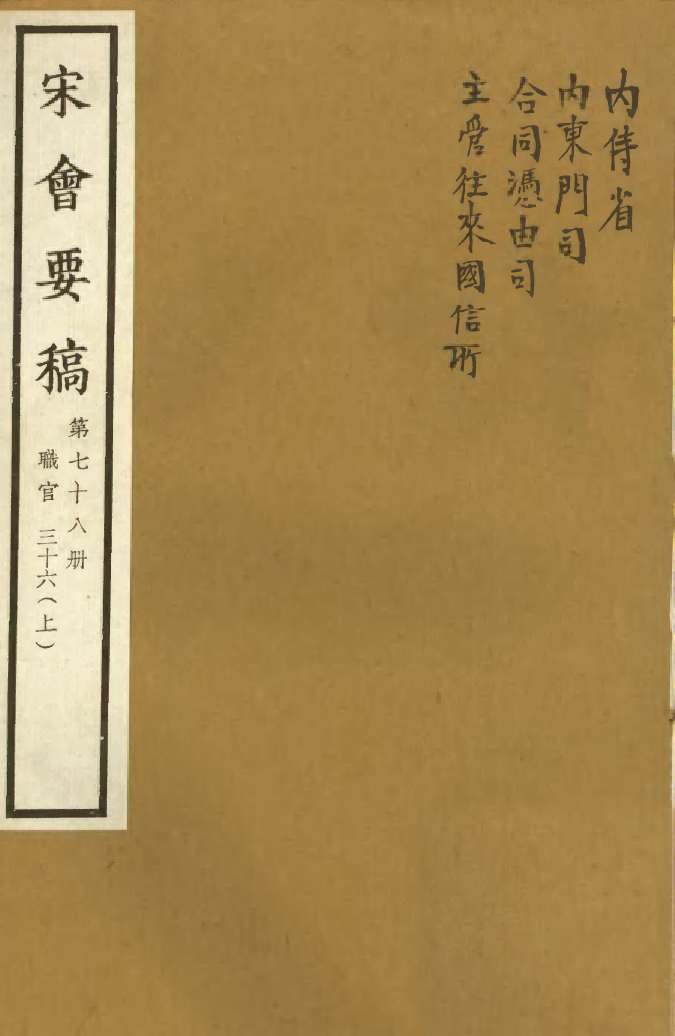 内侍省
内東門司
合同憑由司
主管往來國信所
宋會要稿
第七十八册
職官 三十六(上)